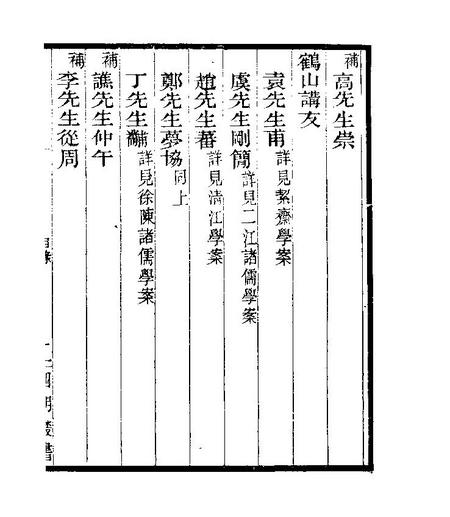 補 高先生崇
鶴山講友
袁先生甫 詳見絜齋學案
虞先生剛簡 詳見二江諸儒學案
趙先生蕃 詳見清江學案
鄭先生夢協 同上
丁先生黼 詳見徐陳諸儒學案
補 譙先生仲午
補 李先生從周
四明叢書